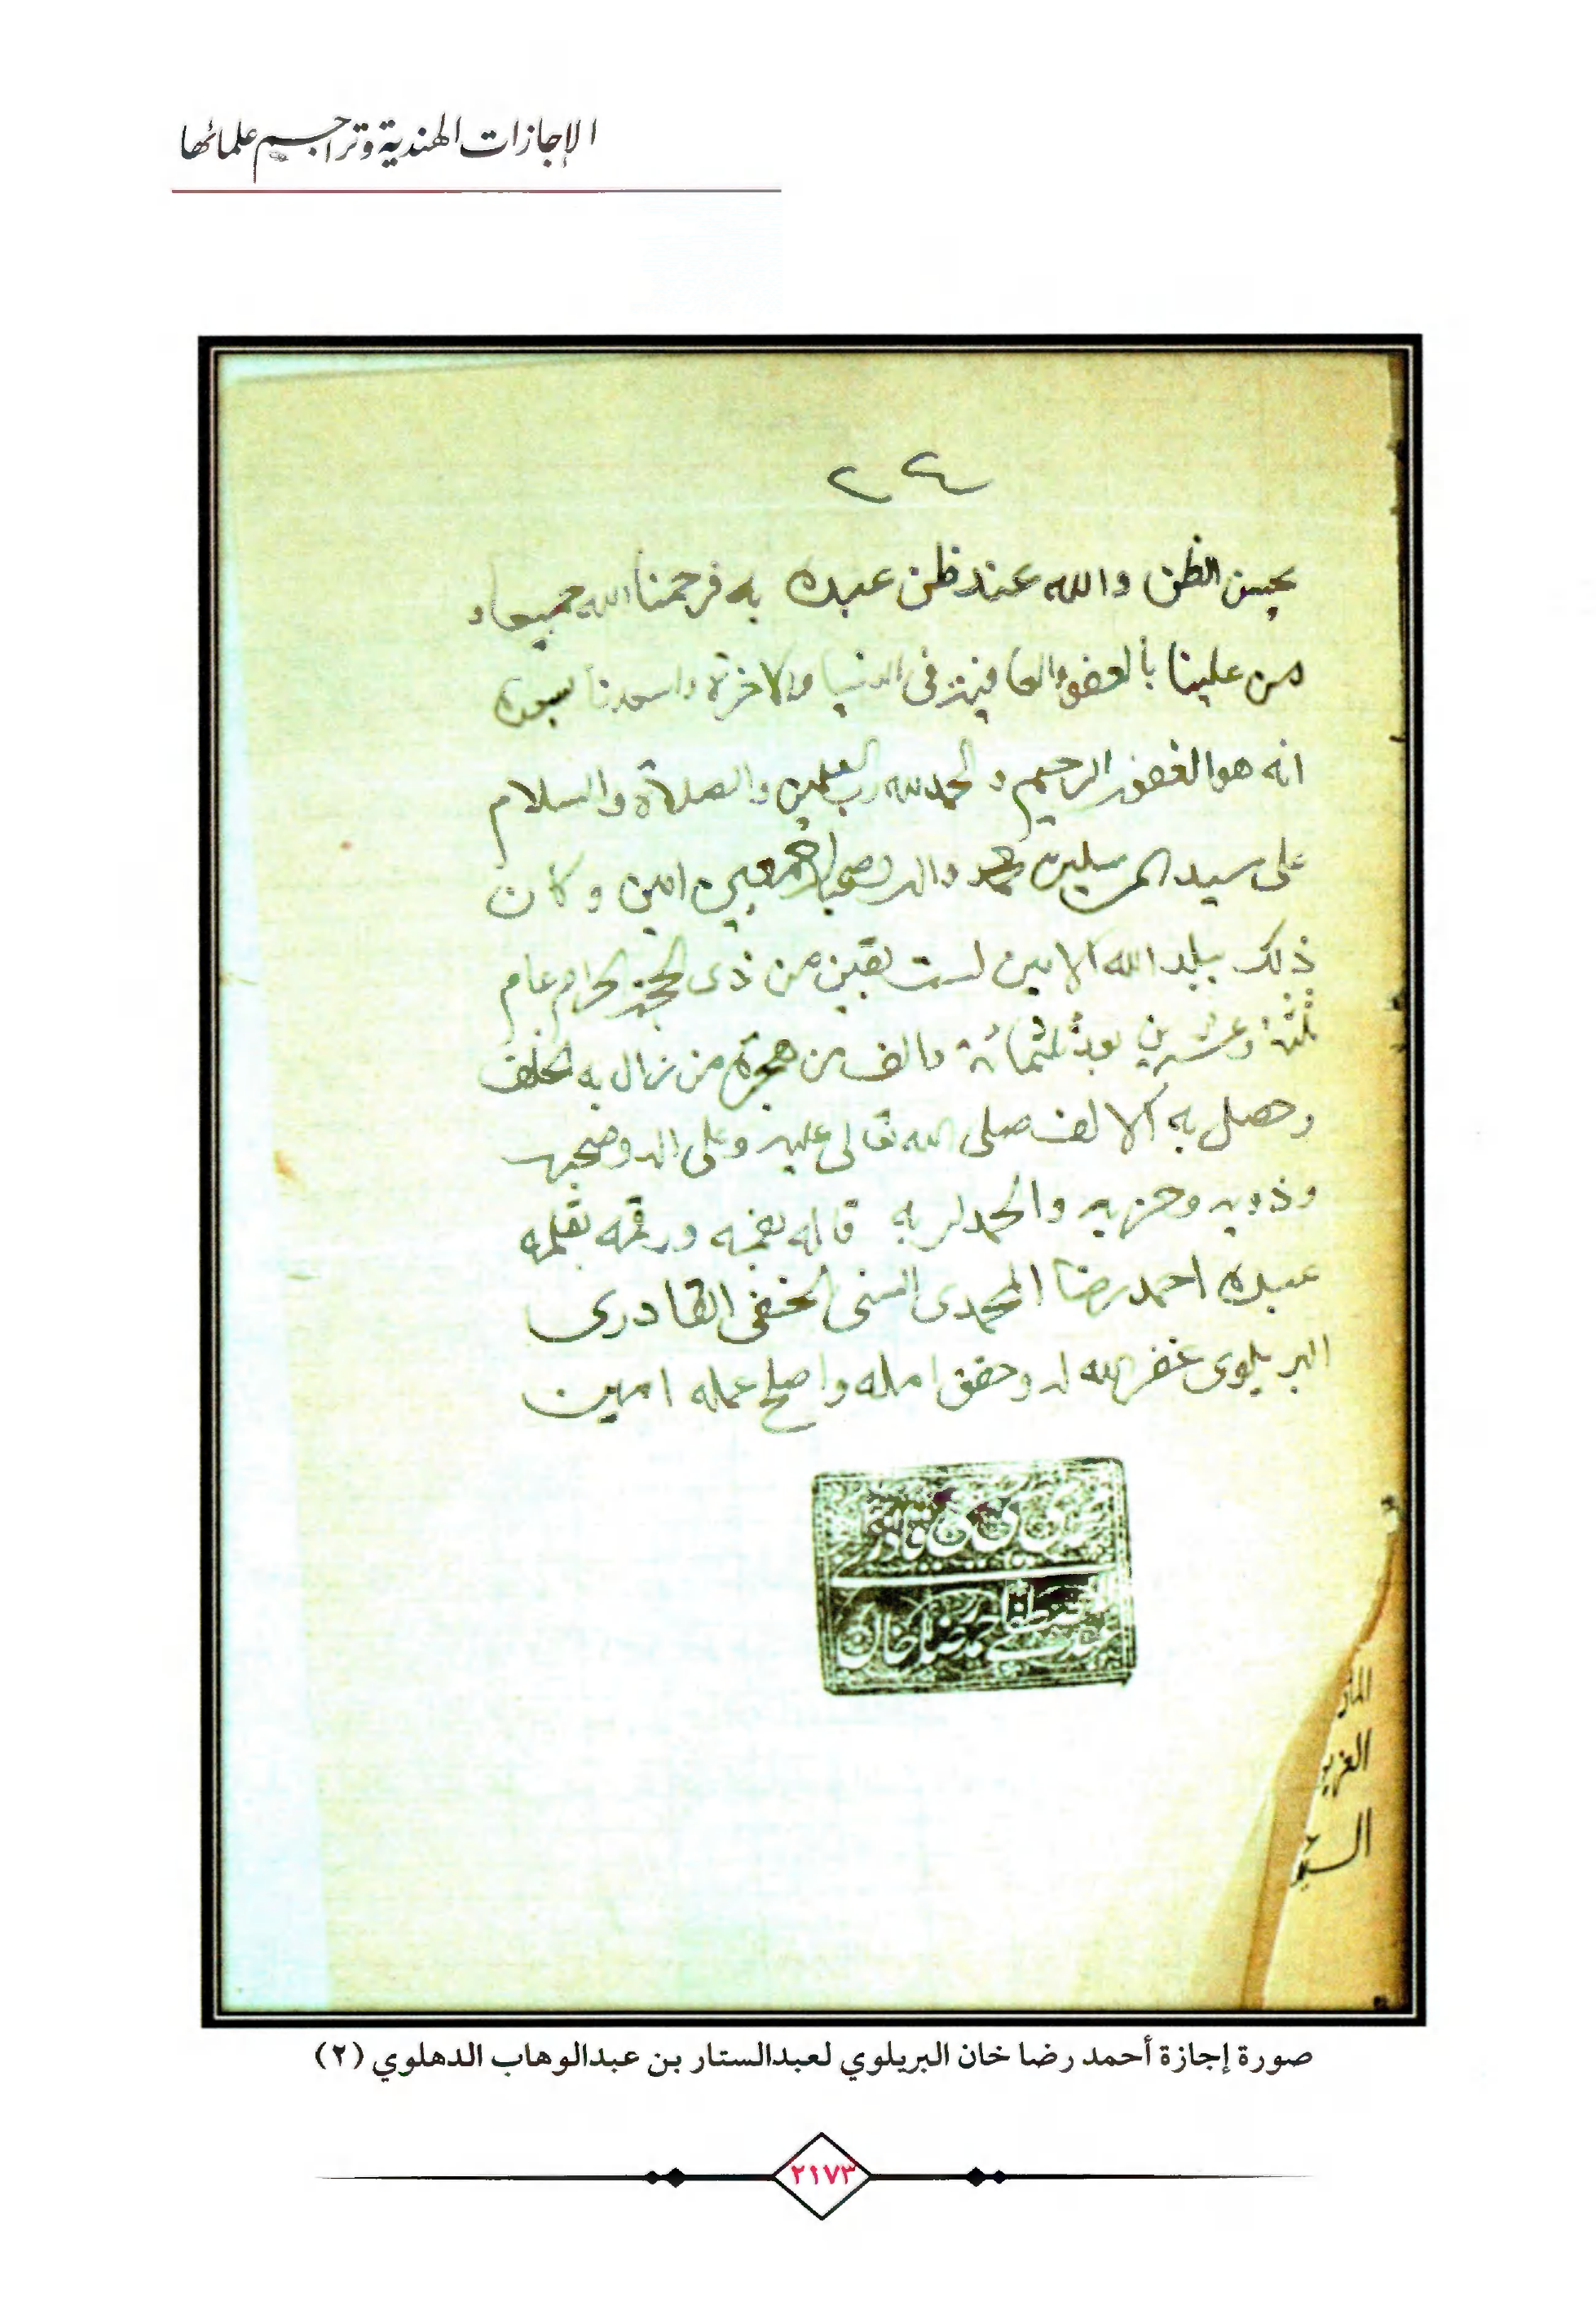 الإجازات الهندية وتراجم علمائها
٢٤
بحسن الظن والله عند ظن عبده به فرحمنا الله جميعا و
من علينا بالعفو والعافية فى الدنيا والاخرة واسعدنا بسعده
انه هو الغفور الرحيم والحمد لله رب العلمين والصلاة والسلام
على سيد المرسلين محمد واله وصحبه اجمعين امين وكان
ذلك ببلد الله الامين لست بقين من ذى الحجة الحرام عام
ثلثة وعشرين بعد ثلثمائة والف من هجرة من زال به الكلف
وحصل به الالف صلى الله تعالى عليه وعلى اله وصحبه
وذويه وحزبه والحمد لربه قاله بفمه ورقمه بقلمه
عبده احمد رضا المحمدى السنى الحنفى القادرى
البريلوى غفر الله له وحقق امله واصلح عمله امين
محمدی سنی حنفی قادری
عبد المصطفی احمد رضا خان
العزيز
صورة إجازة أحمد رضا خان البريلوي لعبدالستار بن عبدالوهاب الدهلوي (٢)
٢١٧٣